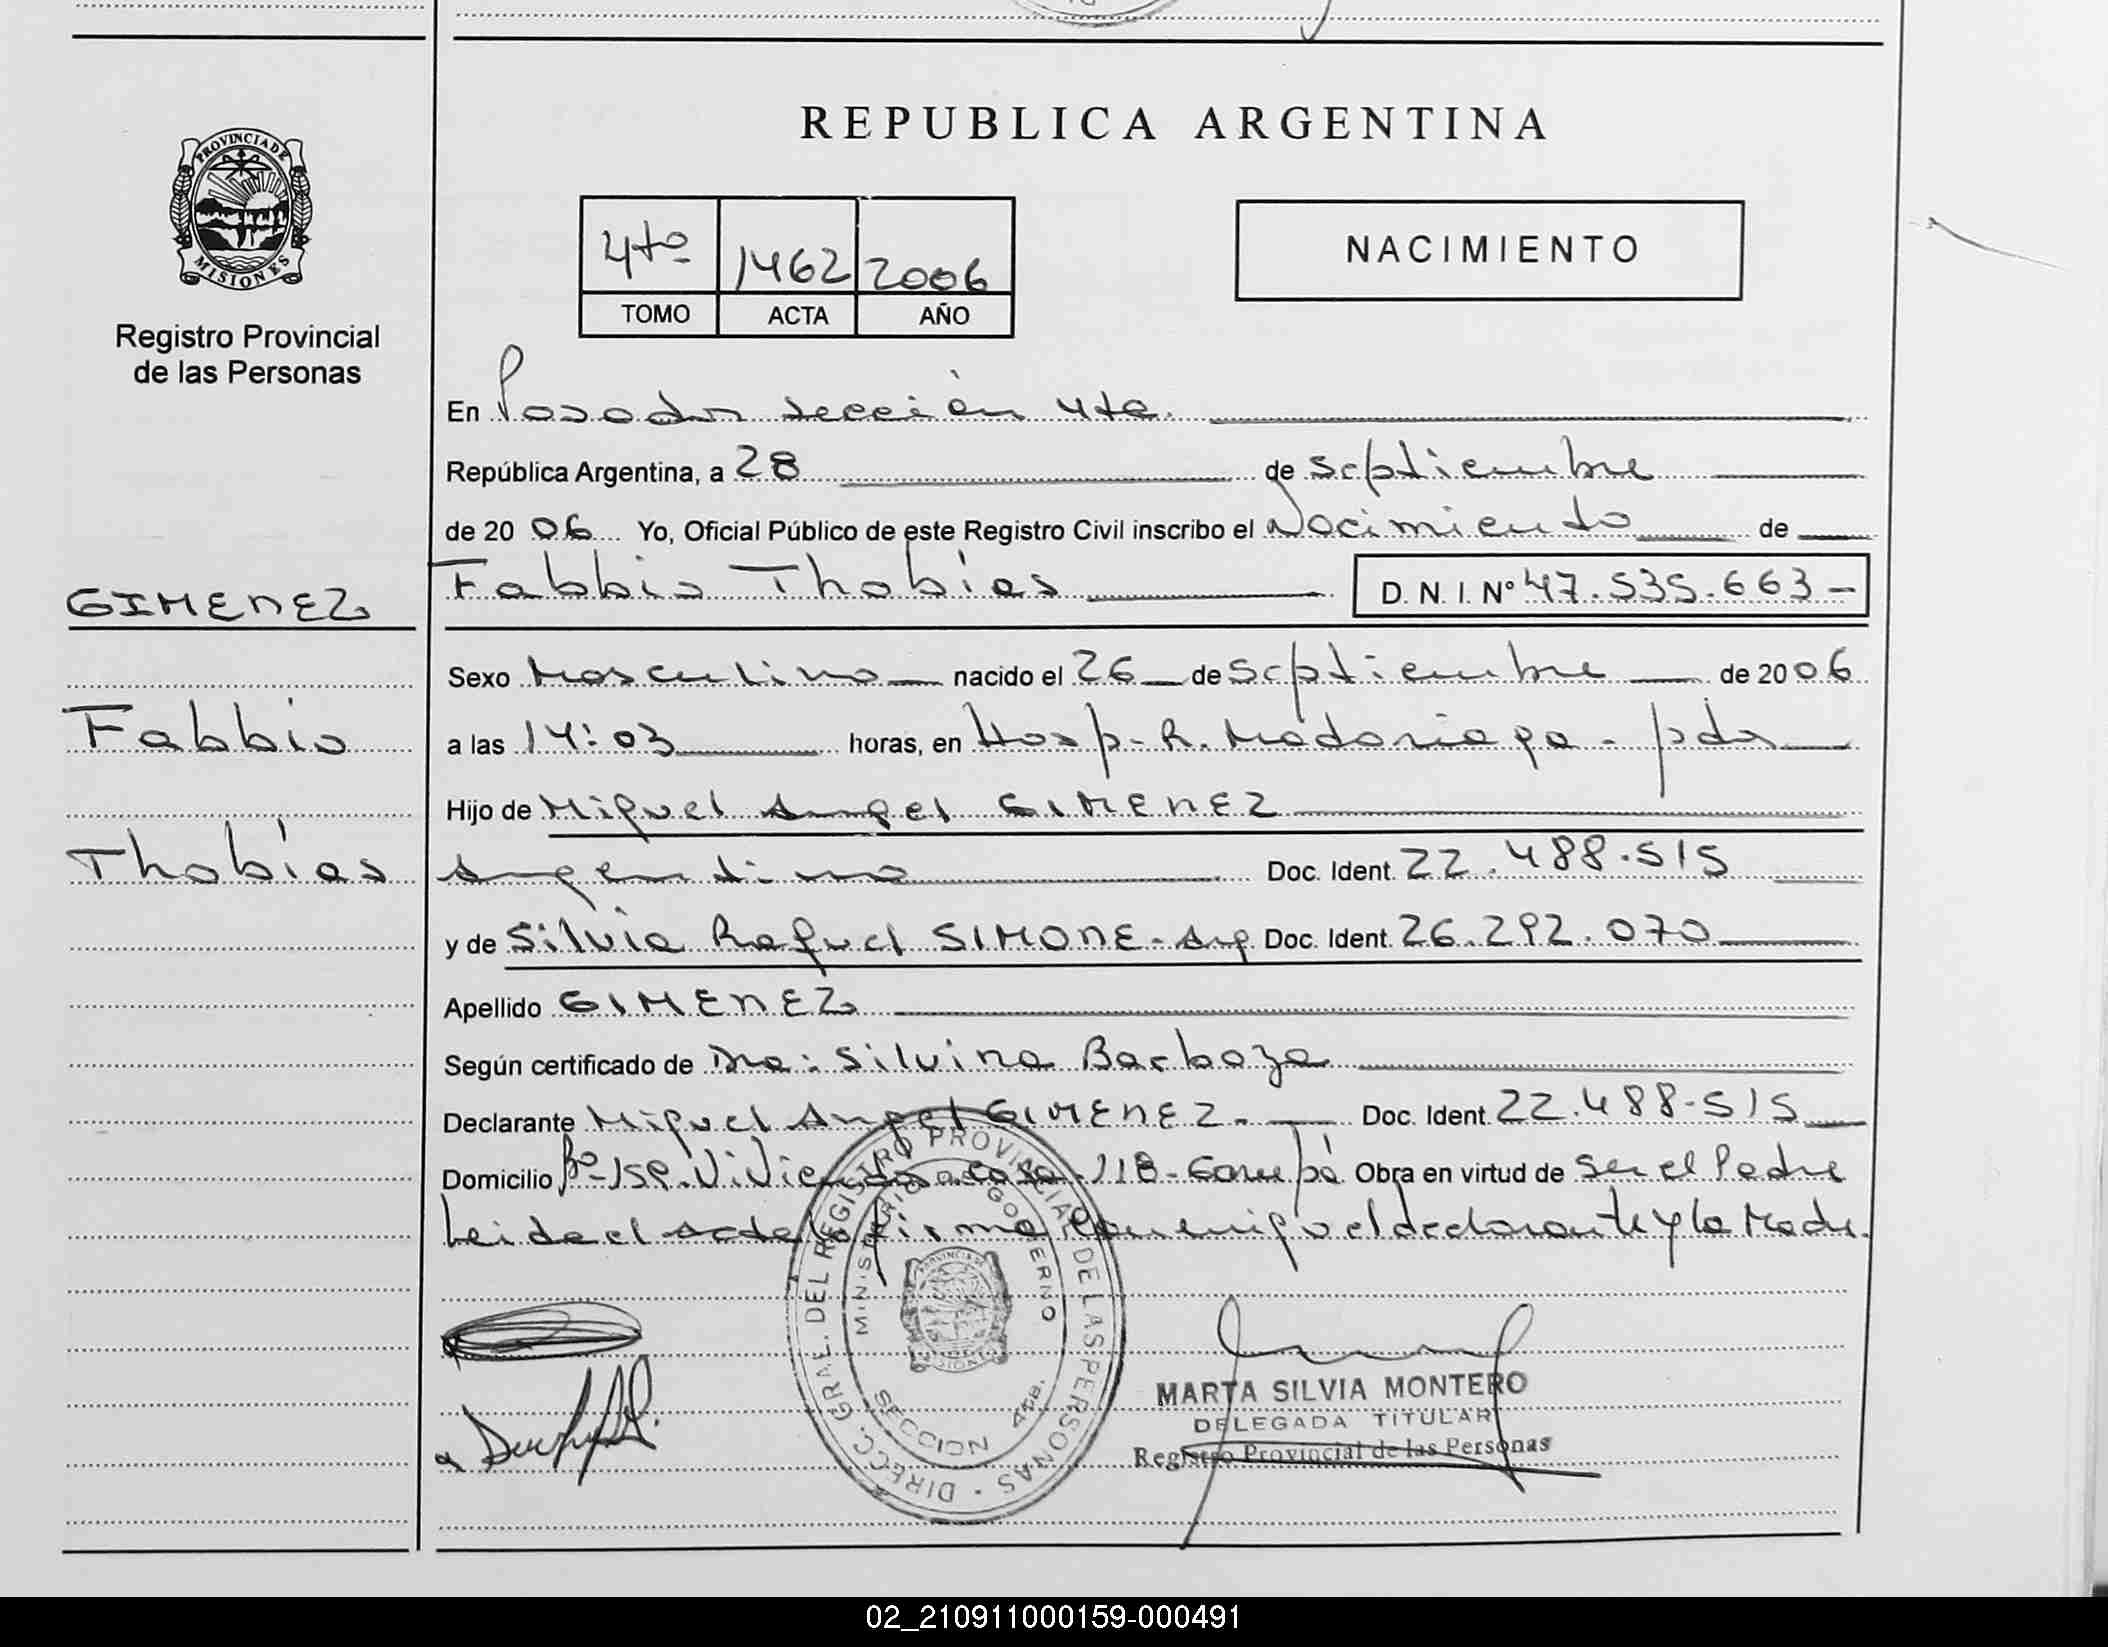 REPUBLICA ARGENTINA
PROVINCIA DE
MISIONES
Registro Provincial
de las Personas
4to 1462 2006
TOMO ACTA AÑO
NACIMIENTO
En Posadas sección 4ta.
República Argentina, a 28 de septiembre
de 2006 Yo, Oficial Público de este Registro Civil inscribo el Nacimiento de
GIMENEZ
Fabbio
Thobías
Fabbio Thobías D.N.I. Nº 47.535.663-
Sexo Masculino nacido el 26 de septiembre de 2006
a las 14:03 horas, en Hosp. R. Madariaga - pdas
Hijo de Miguel Angel GIMENEZ
Argentino Doc. Ident. 22.488.515
y de Silvia Raquel SIMONE - Arg Doc. Ident. 26.292.070
Apellido GIMENEZ
Según certificado de Dra: Silvina Barboza
Declarante Miguel Angel GIMENEZ.- Doc. Ident. 22.488.515
Domicilio Bº 158 Viviendas casa 118 - Garupá Obra en virtud de ser el Padre
Leida el acta la firma conmigo el declarante y la Madre.
DIRECC. GRAL. DEL REGISTRO PROVINCIAL DE LAS PERSONAS
MINISTERIO DE GOBIERNO
PROVINCIA DE
MISIONES
SECCION 4ta.
MARTA SILVIA MONTERO
DELEGADA TITULAR
Registro Provincial de las Personas
02_210911000159-000491